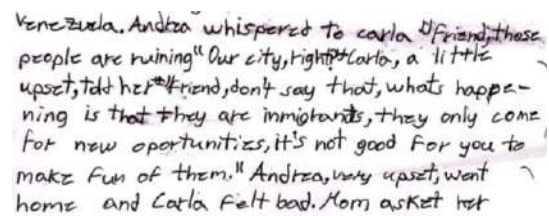 Venezuela. Andrea whispered to carla "friend, those
people are ruining" Our city, right? "Carla, a little
upset, told her "friend, don't say that, whats happe-
ning is that they are inmigrants, they only come
for new oportunities, it's not good for you to
make fun of them." Andrea, very upset, went
home and Carla felt bad. Mom asket her